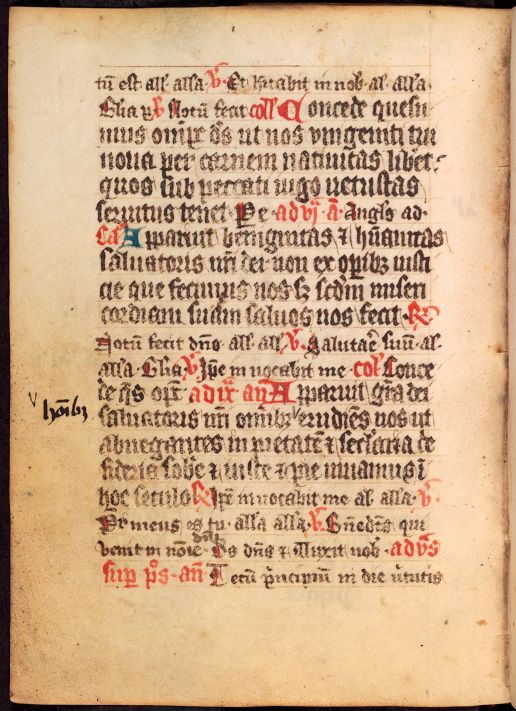 tū est all' all'a. V. Et habitabit in nob. al. all'a.
Gl'ia p V Notū fecit coll' Concede quesu
mus omp̄c ds ut nos vnigeniti tui
noua per carnem natiuitas libet
quos sub peccati iugo uetustas
seruitus tenet. Pe. ad vj. a. Angls ad.
Ca Apparuit benignitas ⁊ hūanitas
saluatoris nrī dei non ex opibȝ iusti
cie que fecimus nos sȝ scdm miseri
cordiam suam saluos nos fecit. R
Notū fecit dn̄s. all. all. V. Salutare suū. al.
all'a. Gl'ia V. Ipe inuocabit me. col' Conce
de q̄s op̄c ad ix. an Apparuit gr̄a dei
saluatoris nrī omibȝ erudiēs nos ut
hōibȝ
abnegantes inpietatē ⁊ seclaria de
sideria sobe ⁊ iuste ⁊ pie uiuamus ī
hoc seculo R Ipe inuocabit me al. all'a. V.
Pr meus es tu. all'a all'a. V. Bn̄edcs qui
venit in noīe Ds dn̄s ⁊ illuxit nob. ad vs
sup ps. an Tecū principiū in die uirtutis